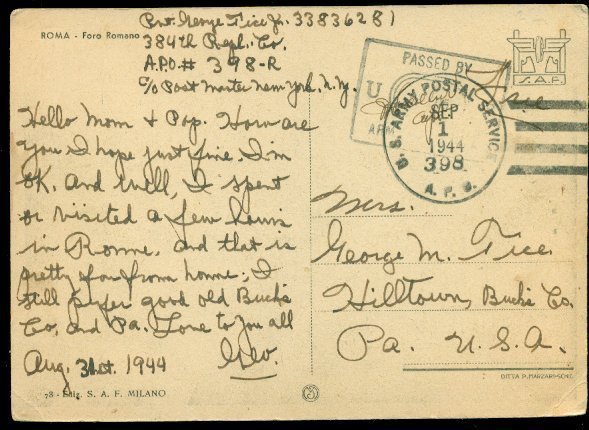 Pvt. George Tice Jr. 33836281
ROMA - Foro Romano
384th Repl. Co.
A.P.O. # 398-R
C/o Post Master New York, N.Y.
PASSED BY
U
ARM
U.S. ARMY POSTAL SERVICE
SEP
1
1944
398
A. P. O.
S.A.F.
Hello Mom & Pop. How are
you I hope just fine I'm
OK. And well, I spent
or visited a few hours
in Rome, and that is
pretty far from home; I
still prefer good old Bucks
Co, and Pa. Love to you all
Aug. 31st. 1944 Geo.
Mrs.
George M. Tice
Hilltown, Bucks Co.
Pa. U.S.A.
78 - Edig. S. A. F. MILANO
DITTA P. MARZARI-SCHIO